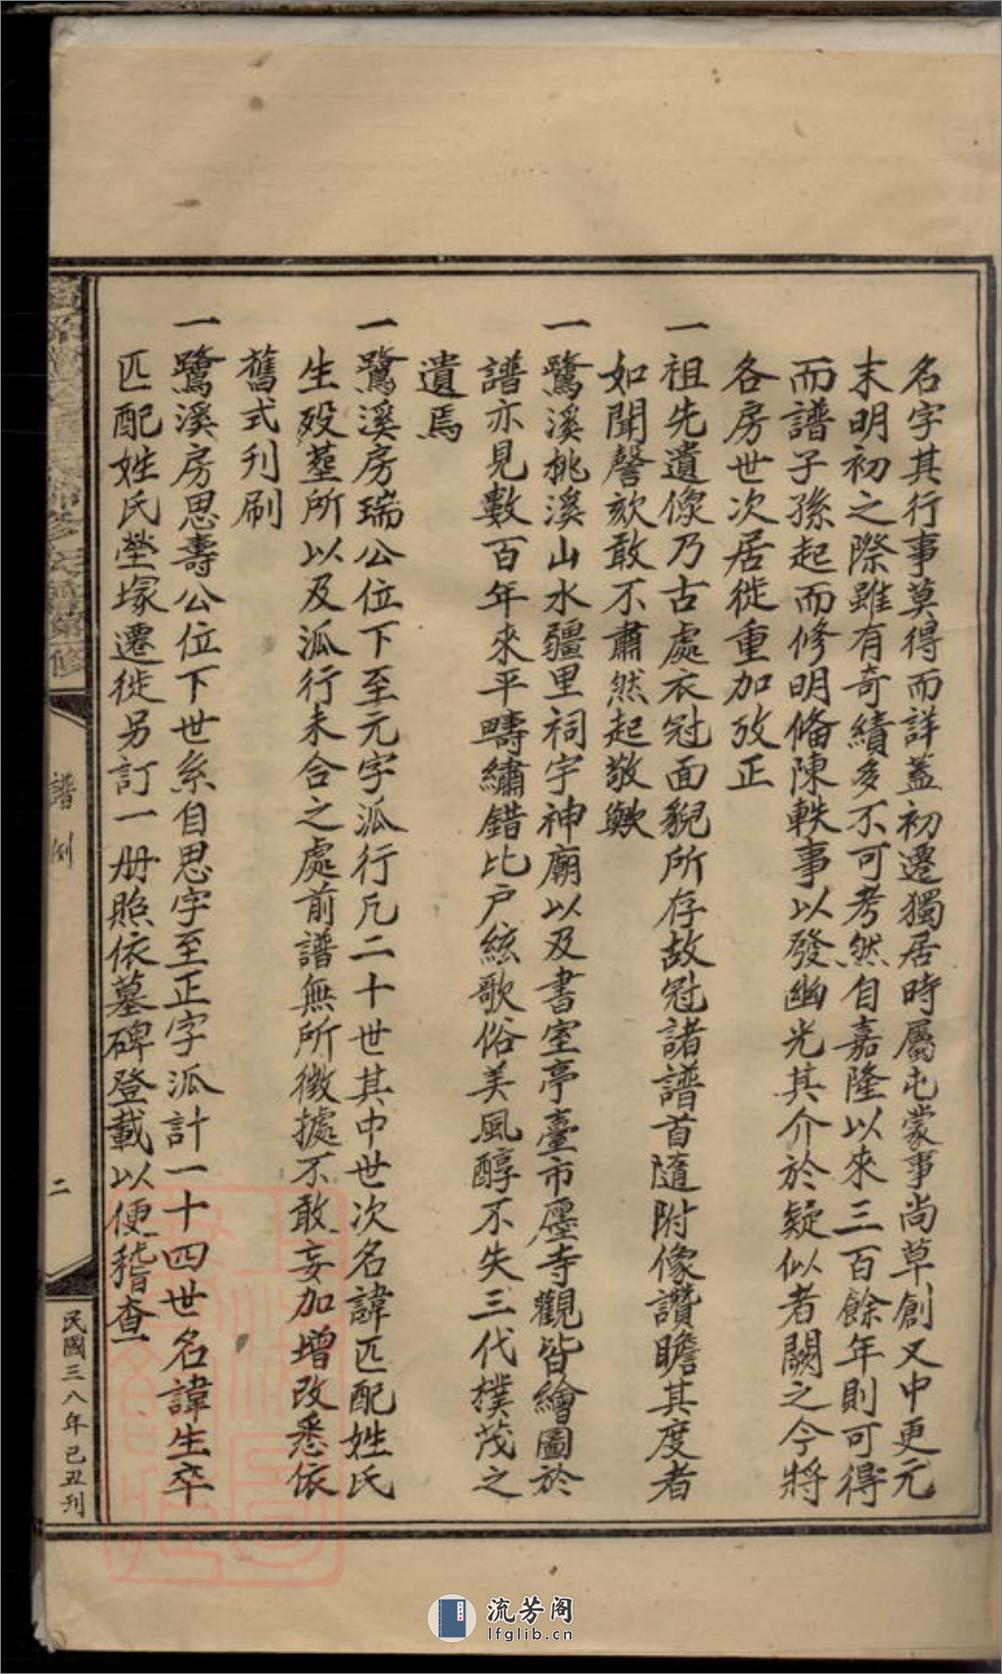 名字其行事莫得而詳蓋初遷獨居時屬屯蒙事尚草創又中更元
末明初之際雖有奇績多不可考然自嘉隆以來三百餘年則可得
而譜子孫起而修明俻陳軼事以發幽光其介於疑似者闕之今將
各房世次居徙重加攷正
一祖先遺像乃古處衣冠面貌所存故冠諸譜首隨附像讚瞻其度者
如聞謦欬敢不肅然起敬歟
一鷺溪桃溪山水疆里祠宇神廟以及書室亭臺市廛寺觀皆繪圖於
譜亦見數百年來平疇繡錯比户絃歌俗美風醇不失三代樸茂之
遺焉
一鷺溪房瑞公位下至元字派行凡二十世其中世次名諱匹配姓氏
生殁塟所以及派行未合之處前譜無所徵據不敢妄加增改悉依
舊式刋刷
一鷺溪房思壽公位下世系自思字至正字派計一十四世名諱生卒
匹配姓氏塋塚遷徙另訂一册照依墓碑登載以便稽查
譜例
二
民國三八年己丑刋
流芳阁
lfglib.cn